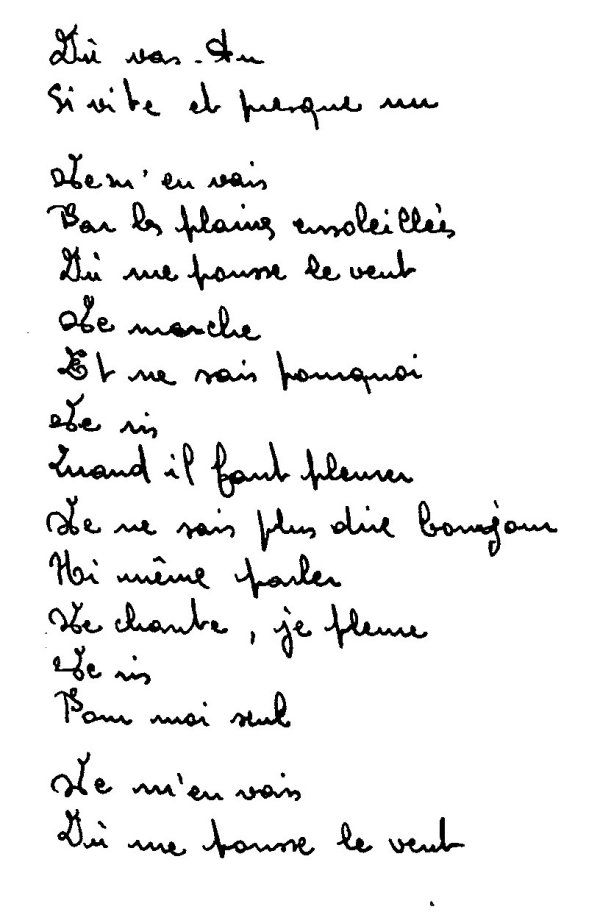 Où vas-tu
Si vite et presque nu
Je m'en vais
Par les plaines ensoleillées
Où me pousse le vent
Je marche
Et ne sais pourquoi
Je ris
Quand il faut pleurer
Je ne sais plus dire bonjour
Ni même parler
Je chante, je pleure
Je ris
Pour moi seul
Je m'en vais
Où me pousse le vent